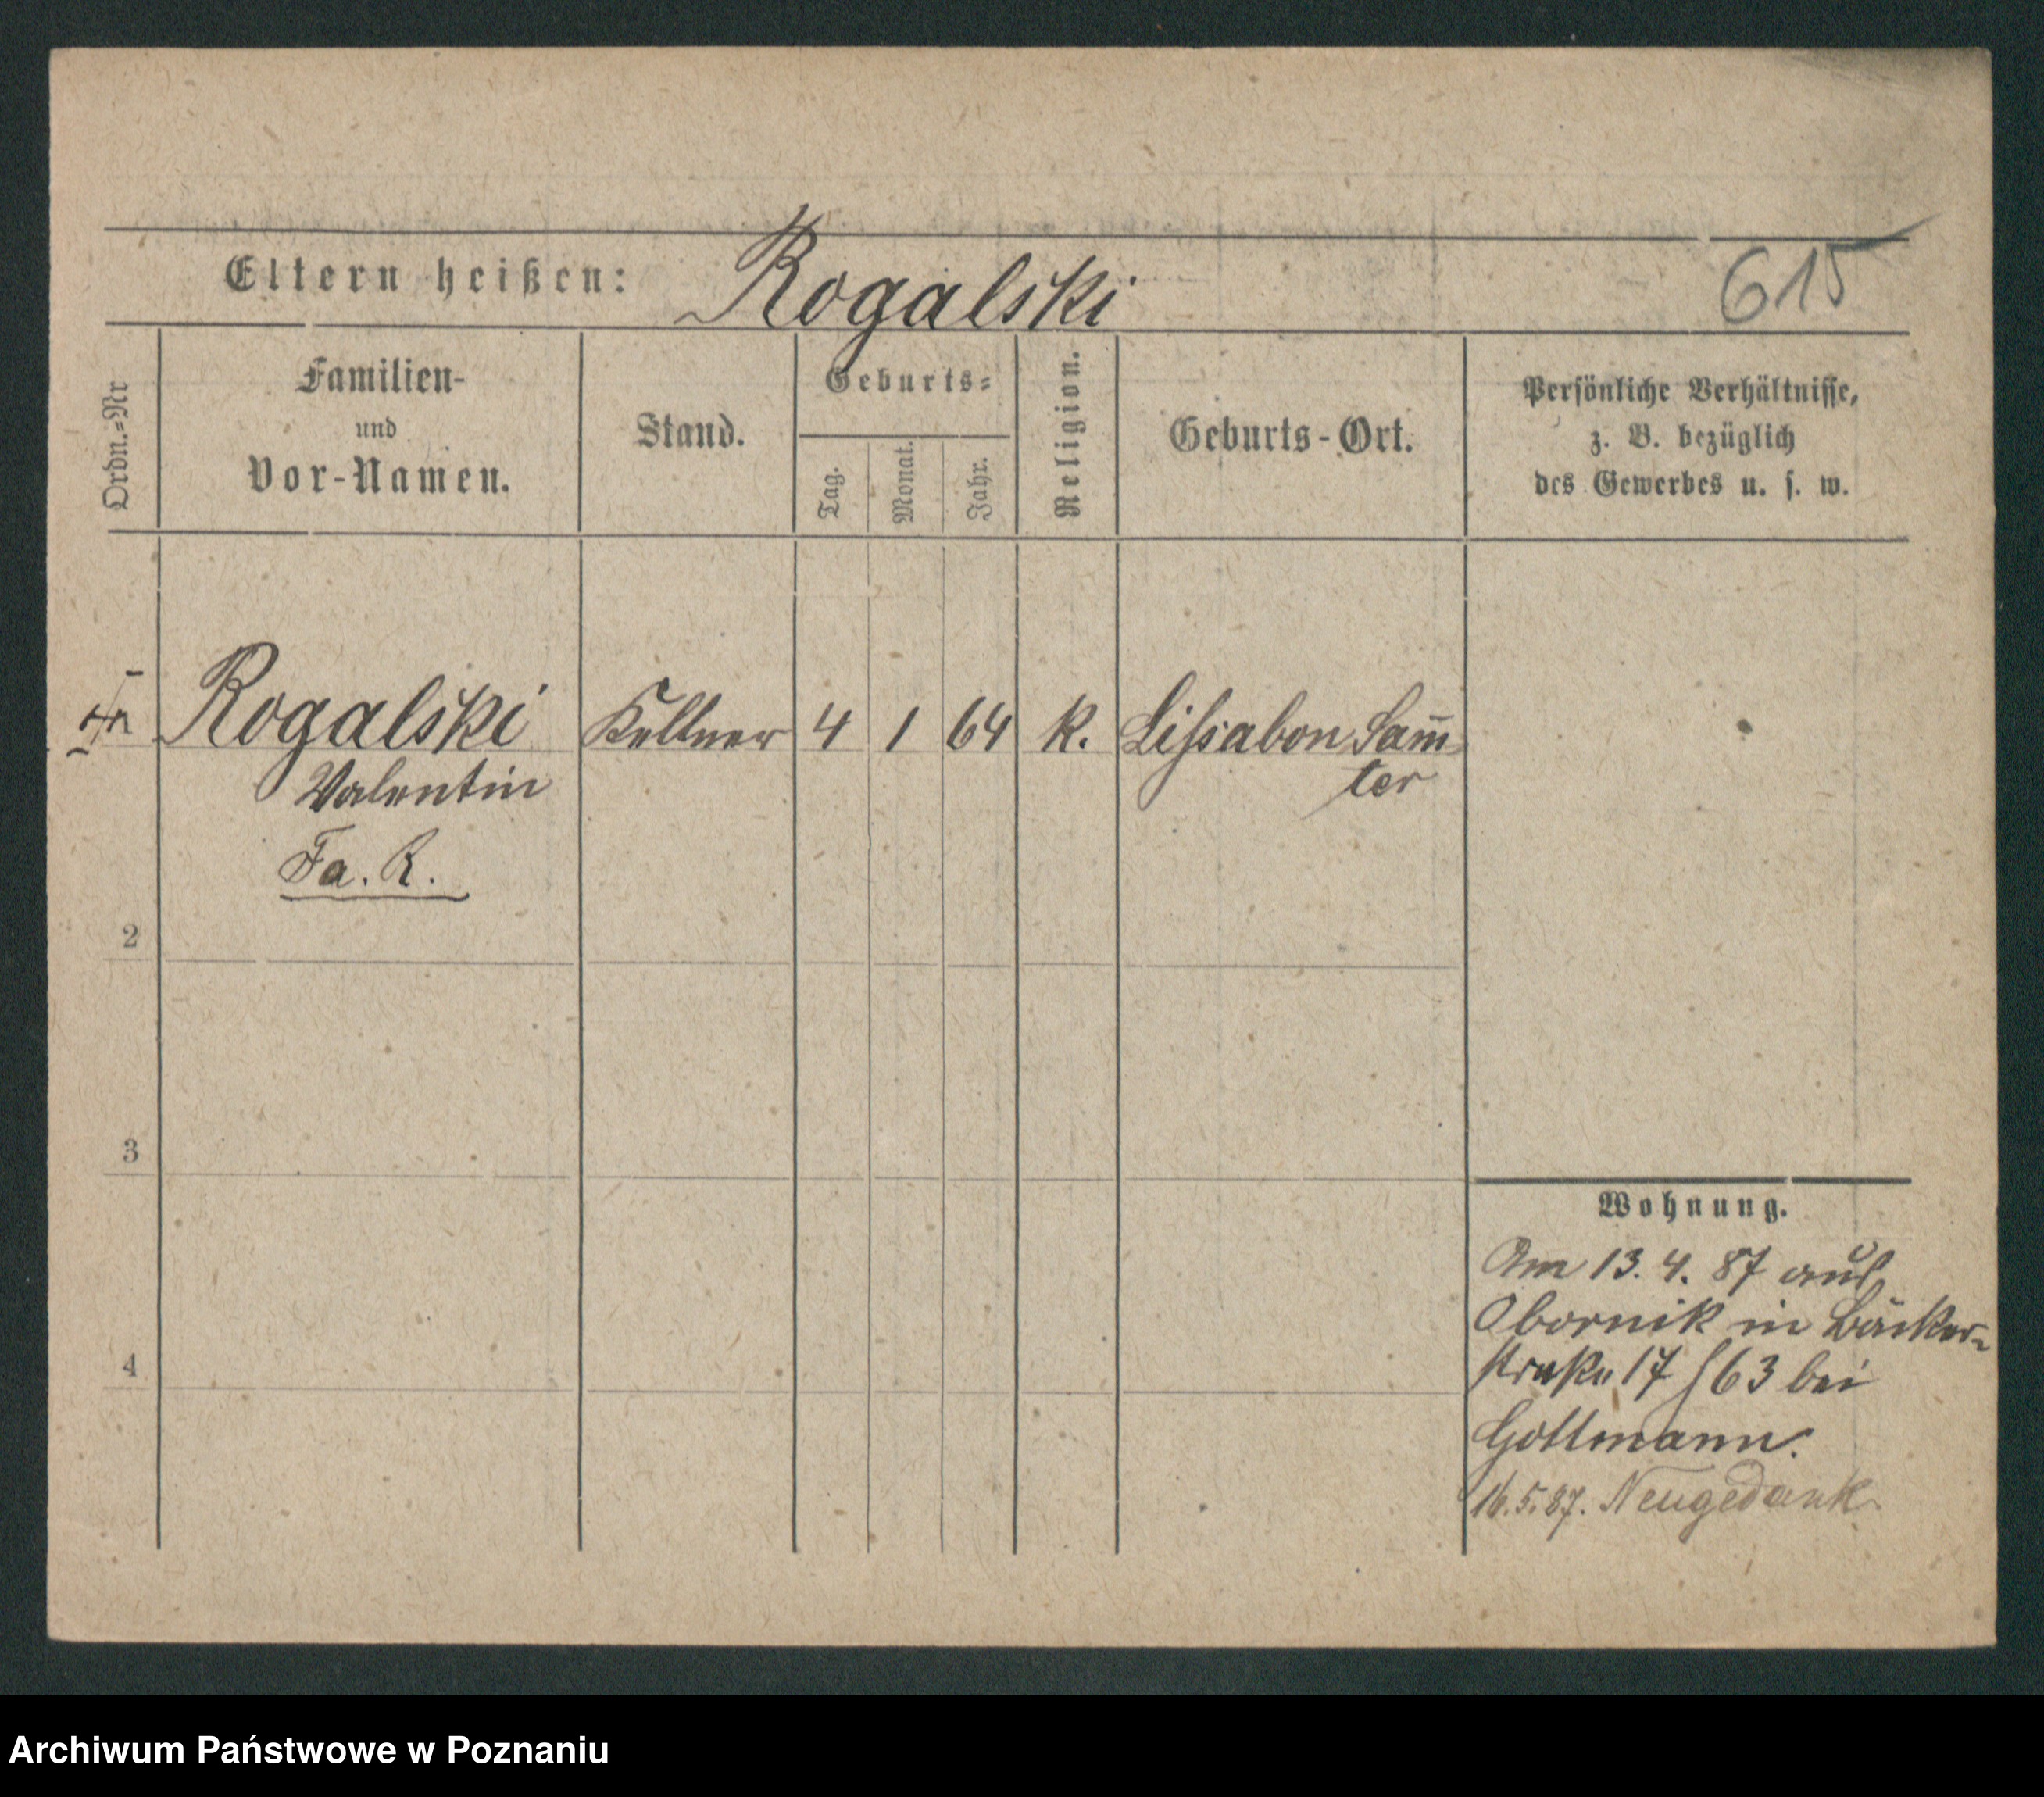 Eltern heißen: Rogalski 615
Ordn.=Nr
Familien-
und
Vor-Namen.
Stand.
Geburts=
Tag.
Monat.
Jahr.
Religion.
Geburts-Ort.
Persönliche Verhältnisse,
z. B. bezüglich
des Gewerbes u. s. w.
Rogalski Kellner 4 1 64 K. Lissabon Sam̅
Valentin ter
Fa. R.
2
3
4
Wohnung.
Am 13. 4. 87 aus
Obornik in Bäcker-
straße 17/63 bei
Gottmann.
16.5.87. Neugedank
Archiwum Państwowe w Poznaniu